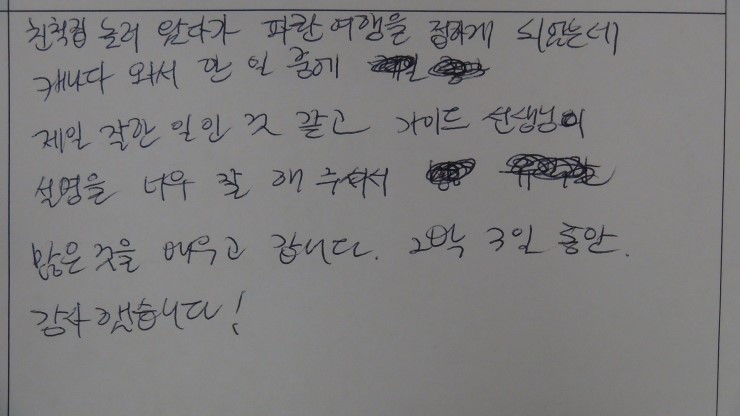 친척집 놀러 왔다가 파란여행을 접하게 되었는데
캐나다 와서 한 일 중에
제일 잘한 일인 것 같고 가이드 선생님이
설명을 너무 잘 해 주셔서
많은 것을 배우고 갑니다. 2박 3일 동안.
감사했습니다!